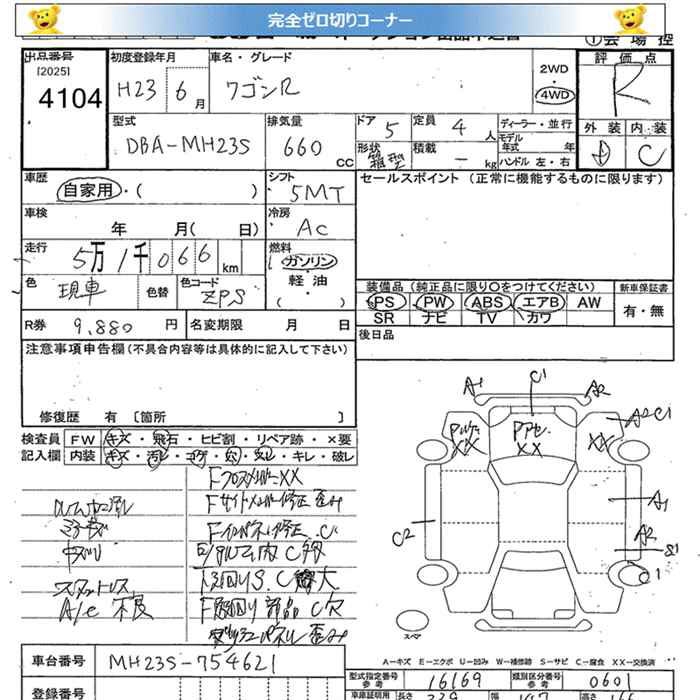 完全ゼロ切りコーナー
出品番号 初度登録年月 車名・グレード 評価点
[2025] 4104
H23 6月 ワゴンR 2WD 4WD R
型式 排気量 ドア 5 定員 4人 ディーラー・並行 外装 内装
DBA-MH23S 660 CC 形状 箱型 積載 - kg モデル年式 年 D C
ハンドル 左・右
車歴 自家用・( ) シフト 5MT セールスポイント (正常に機能するものに限ります)
車検 年 月( 日) 冷房 AC
走行 5万1千066km 燃料 ガソリン 軽油 ( ・ )
色 現車 色替 色コード ZPS 装備品 (純正品に限り〇をつけてください) 新車保証書
PS PW ABS エアB AW 有・無
SR ナビ TV カワ
R券 9,880円 名変期限 月 日 後日品
注意事項申告欄 (不具合内容等は具体的に記入して下さい)
修復歴 有 [箇所 ]
検査員 FW キズ・飛石・ヒビ割・リペア跡・×要
記入欄 内装 キズ・汚レ・コゲ・穴・スレ・キレ・破レ
Fクロスメンバーxx
Fサイドメンバー修正 歪み
Fインパネ修正 C
スタットレス
A/C 不良
A1 C1 A2
A2 C1
XX XX XX
A1
C2 A2
S1
C1
スペア
A-キズ E-エクボ U-凹み W-補修跡 S-サビ C-腐食 XX-交換済
車台番号 MH23S-754621 型式指定番号 参考 16169 類別区分番号 参考 0601
登録番号 車庫証明用 長さ 339 幅 147 高さ 166